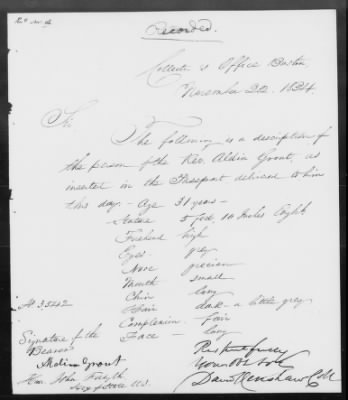 Recorded.
Collector's Office Boston
November 22d. 1834.
Sir
The following is a description of
the person of the Rev. Aldin Grout, as
inserted in the Passport delivered to him
this day - Age 31 years -
Stature 5 feet, 10 Inches
Forehead high
Eyes grey
Nose grecian
Mouth small
Chin long
Hair dark - a little grey
Complexion - fair
Face - long
Signature of the
Bearer
Aldin Grout
Hon. John Forsyth
Secy State U.S.
Respectfully
Your Obt
David Henshaw Coll